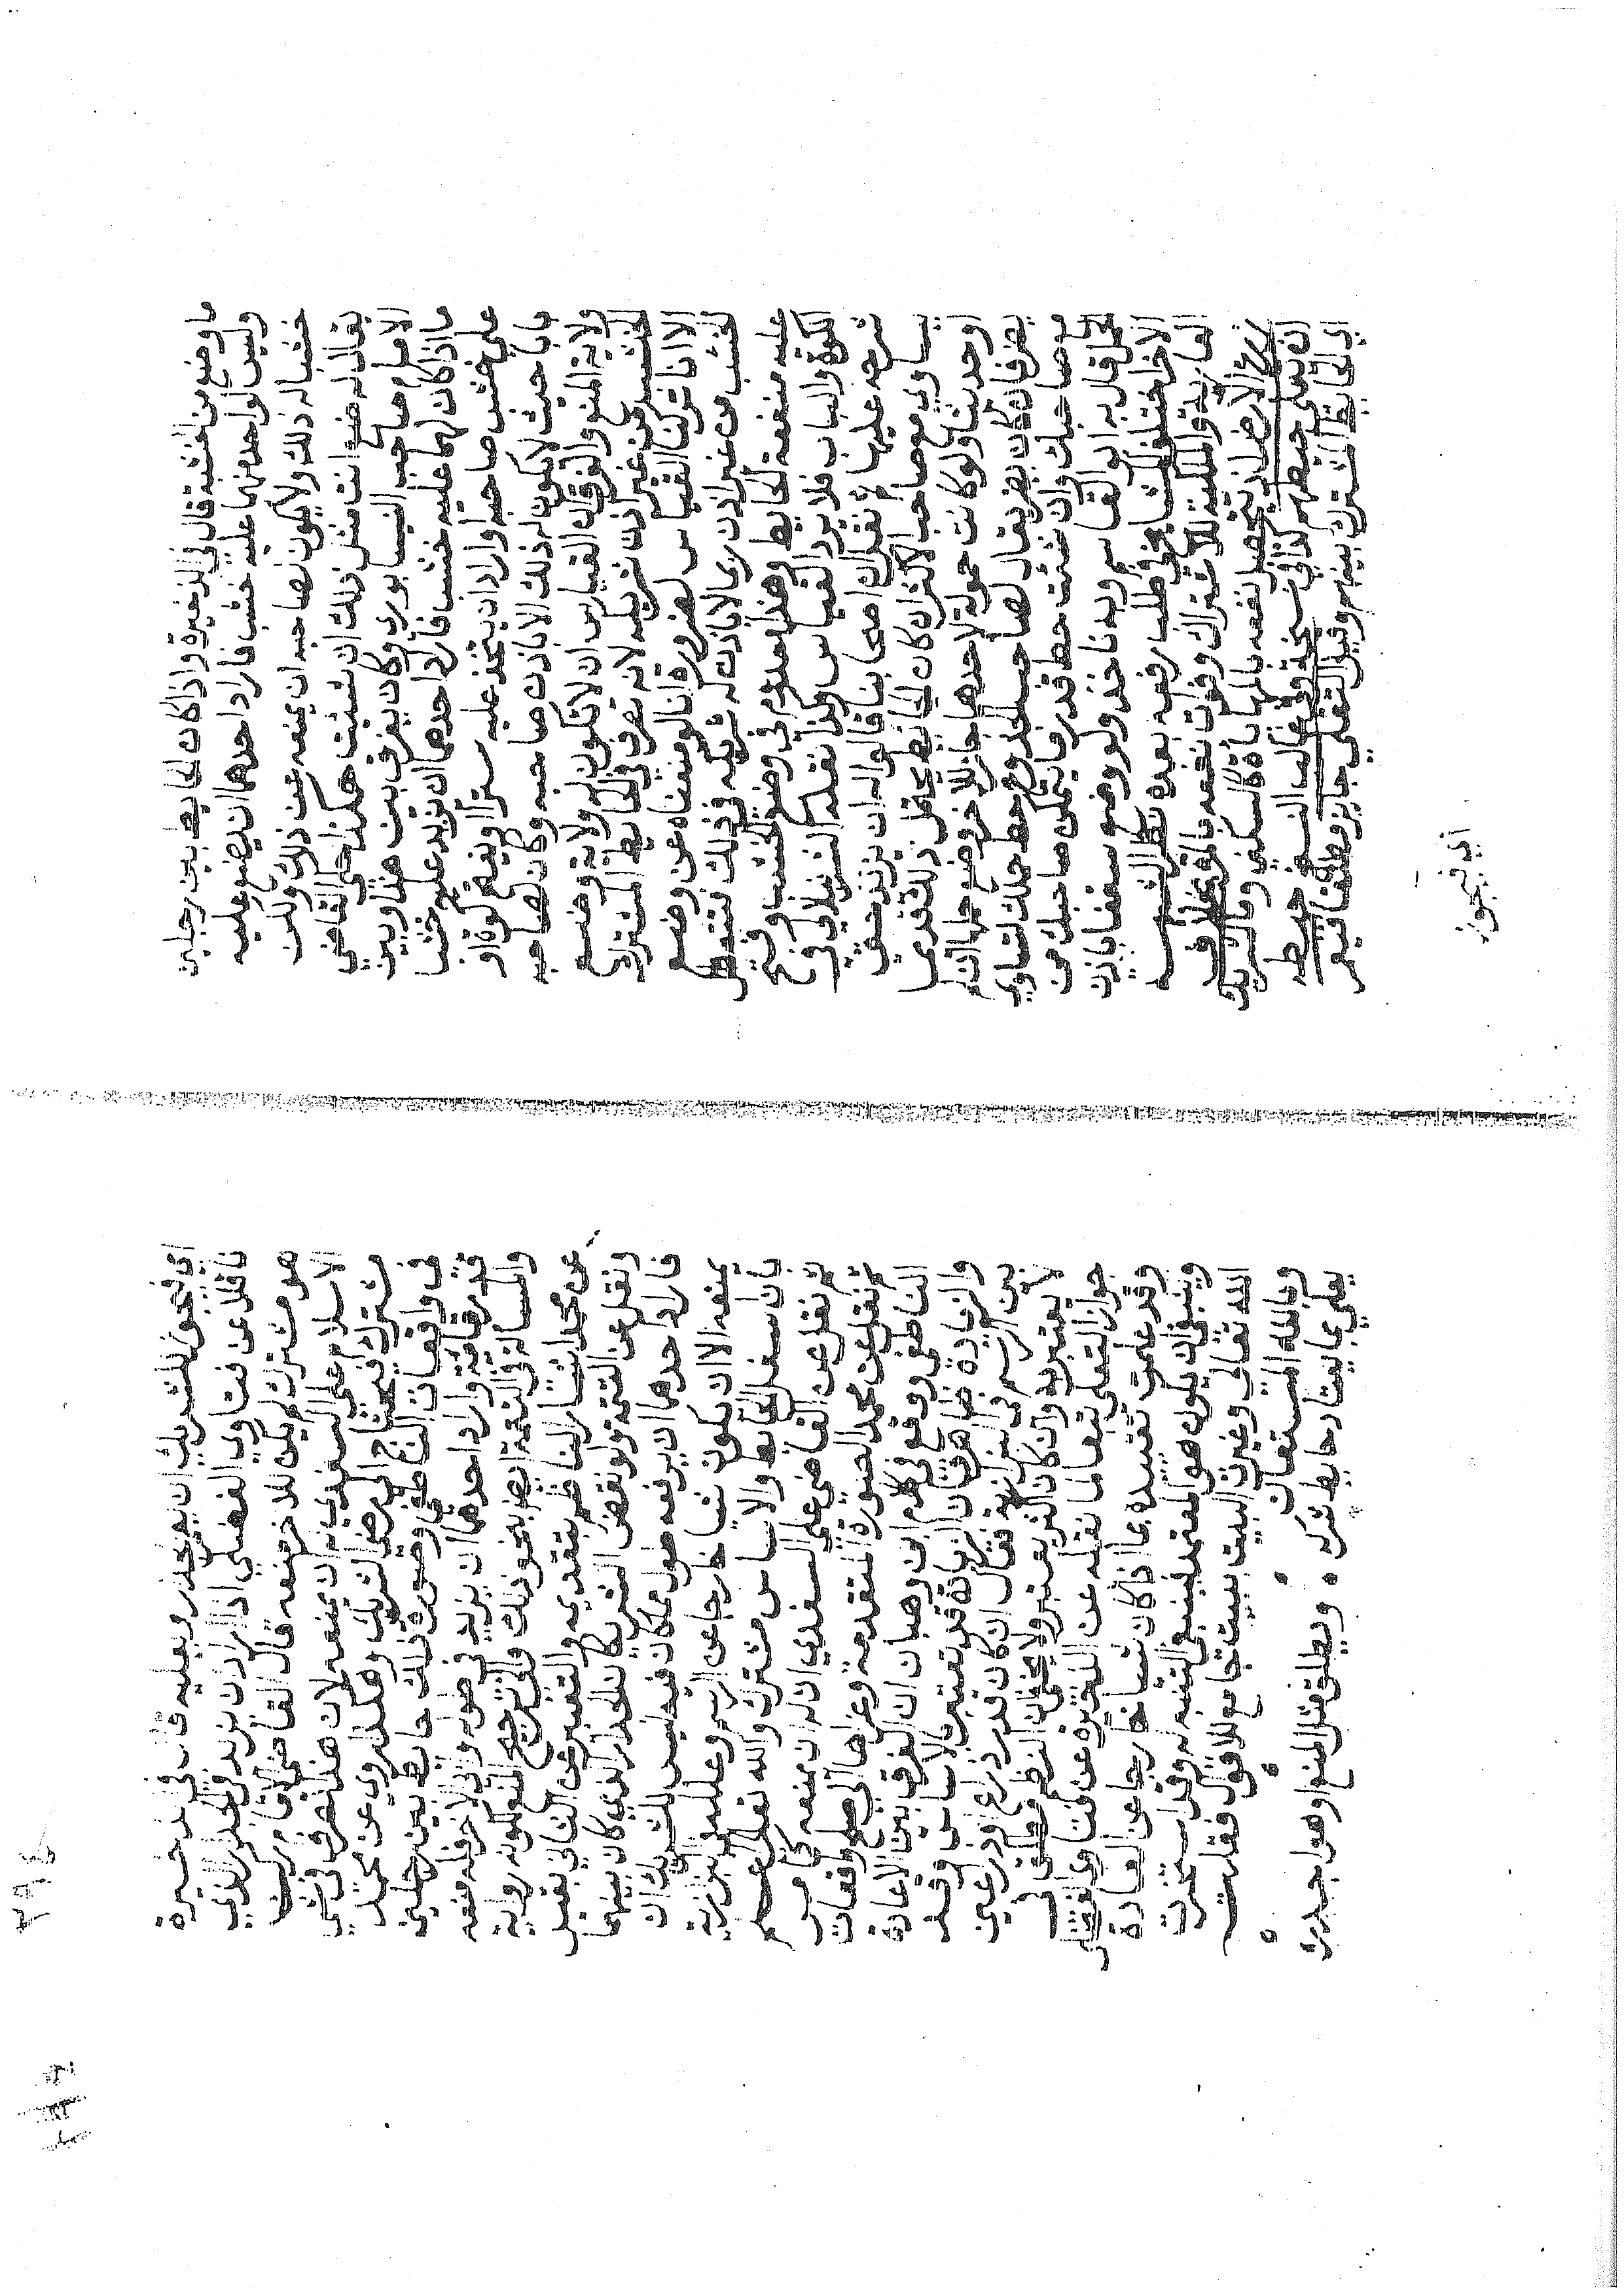 ما وضع من الخشبة قال في الذخيرة واذا كان الحايط بين رجلين
وليس لواحد منهما عليه خشب فاراد احدهما ان يضع عليه
خشبا له ذلك ولا يكون لصاحبه ان يمنعه عن ذلك ولكن
يقال له ضع انت مثل ذلك ان شئت هكذا حكي القاضي
الامام صاحب النيسابوري وكان يفرق بين هذا وبين
ما اذا كان لهما عليه خشب فاراد احدهما ان يزيد عليه خشبا
علي خشب صاحبه او اراد ان يتخذ عليه سترا او يفتح كوة او
بابا حيث لا يكون له ذلك الا باذن صاحبه وكان لصاحبه
ولاية المنع والفرق ان القياس ان لا تكون له ولاية وضع
الخشب من غير اذن شريكه لانه تصرف في الحايط المشترك
الا انا تركنا القياس لضرورة انا لو منعناه عن وضع
الخشب من غير اذن ربما لا ياذن له شريكه في ذلك فتتعطل
عليه منفعة الحايط وهذا معدوم في وضع الخشب وفتح
الكوة والباب فلا يرد القياس وكذا نقله الشرنبلالي في
شرحه عليها ثم نقل ان اصحابنا قالوا له ان يزيد حتي
يساوي مع صاحب الاكثر ان كان الحايط يحتمل ذلك تقدم
او حديثا ولو كانت حمولة لاحدهما جاز للاخر وضع حمل الثاني
يضر فان كان يضر يقال لصاحب الجذوع حط حملك لتساوي
مع صاحبك وان شئت حط قدر ما يتمكن صاحبك من
الحمل قال به ابو القاسم وبه ناخذ ولو وضع سقفا باذن
الاخر اختلف المشايخ في طلب رفعه بعده نظر الشبهه
العارية والملكية للاشتراك وفوات نفعه بالمرة بخلاف
زرع الارض لانه تتحصل نفعه بالمهاياة كالسكني وما للشريك
ان يعلي حيطهم كذا في نسخة وفي غالب النسخ حيطه
اي الحايط المشترك بينهم وقيل التعلي جايز مطلقا فيعمر
اي فيجوز
اي فيجوز للشريك ان يعلي الجدار ويعليه قال في الذخيرة
ناقلا عن فتاوي الفضلي اذا اراد ان يزيد في الجدار الذي
هو مشترك لم يكن للاخر منعه قال القاضي الامام ركن
الاسلام علي السغدي له ان يمنعه لان هذا تصرف في شي
مشترك فيحتاج الي رضي الشريك وهكذا روي عن محمد
في واقعات الناطفي وصورة ذلك حايط بين رجلين
قدر قامة واراد احدهما ان يزيد في طوله وابي الاخر فله منعه
والمسالة في التتمة ايضا بنحو ذلك والترجيح لكونه رواية
عن محمد اشار الناظم بتقديمه والتعبير عن الثاني بقيل
ونقل عن التتمة ولو نقض الشريكان الجدار الذي كان بينهما
فاراد احدهما ان يرفعه طول مما كان فيه ليس للشريك ان
يمنعه الا ان يكون شيا خارجا عن الرسم وعلله البزازية
بان سفل الحايط والاساس مشترك والله تعالي اعلم
ثم نقل عن القاضي علي السغدي ان له ان يمنعه كما مر
ثم نقل عن محمد الصورة المتقدمة وعزاها الي واقعات
الناطفي ووقع في كلام ابن وهبان ان الفرق بين الاعادة
والزيادة ظاهر فان الزيادة قد تعتبر بالاساس وقد
بين الرسم في البزازية فقال ان كان قدر ذراع او ذراعين
لا يعتبر به وان كان اكثر يعتبر ولا يخفي ان النظم مطلق في
جواز التعلي تبعا لما نقله عن الذخيرة عن فتاوي الفضلي
وقد علمت تقييده بما اذا كان شيا خارجا عن العادة
وينبغي ان يكون هو المعتمد فينبغي التنبه له وقد استخرت
الله تعالي وغيرت البيت ببيت جامع للاقوال فقلت
وبالله المستعان
يعلي بما يعتاد حايط شركه ه ويطلق قيل المنع او هو اجدر